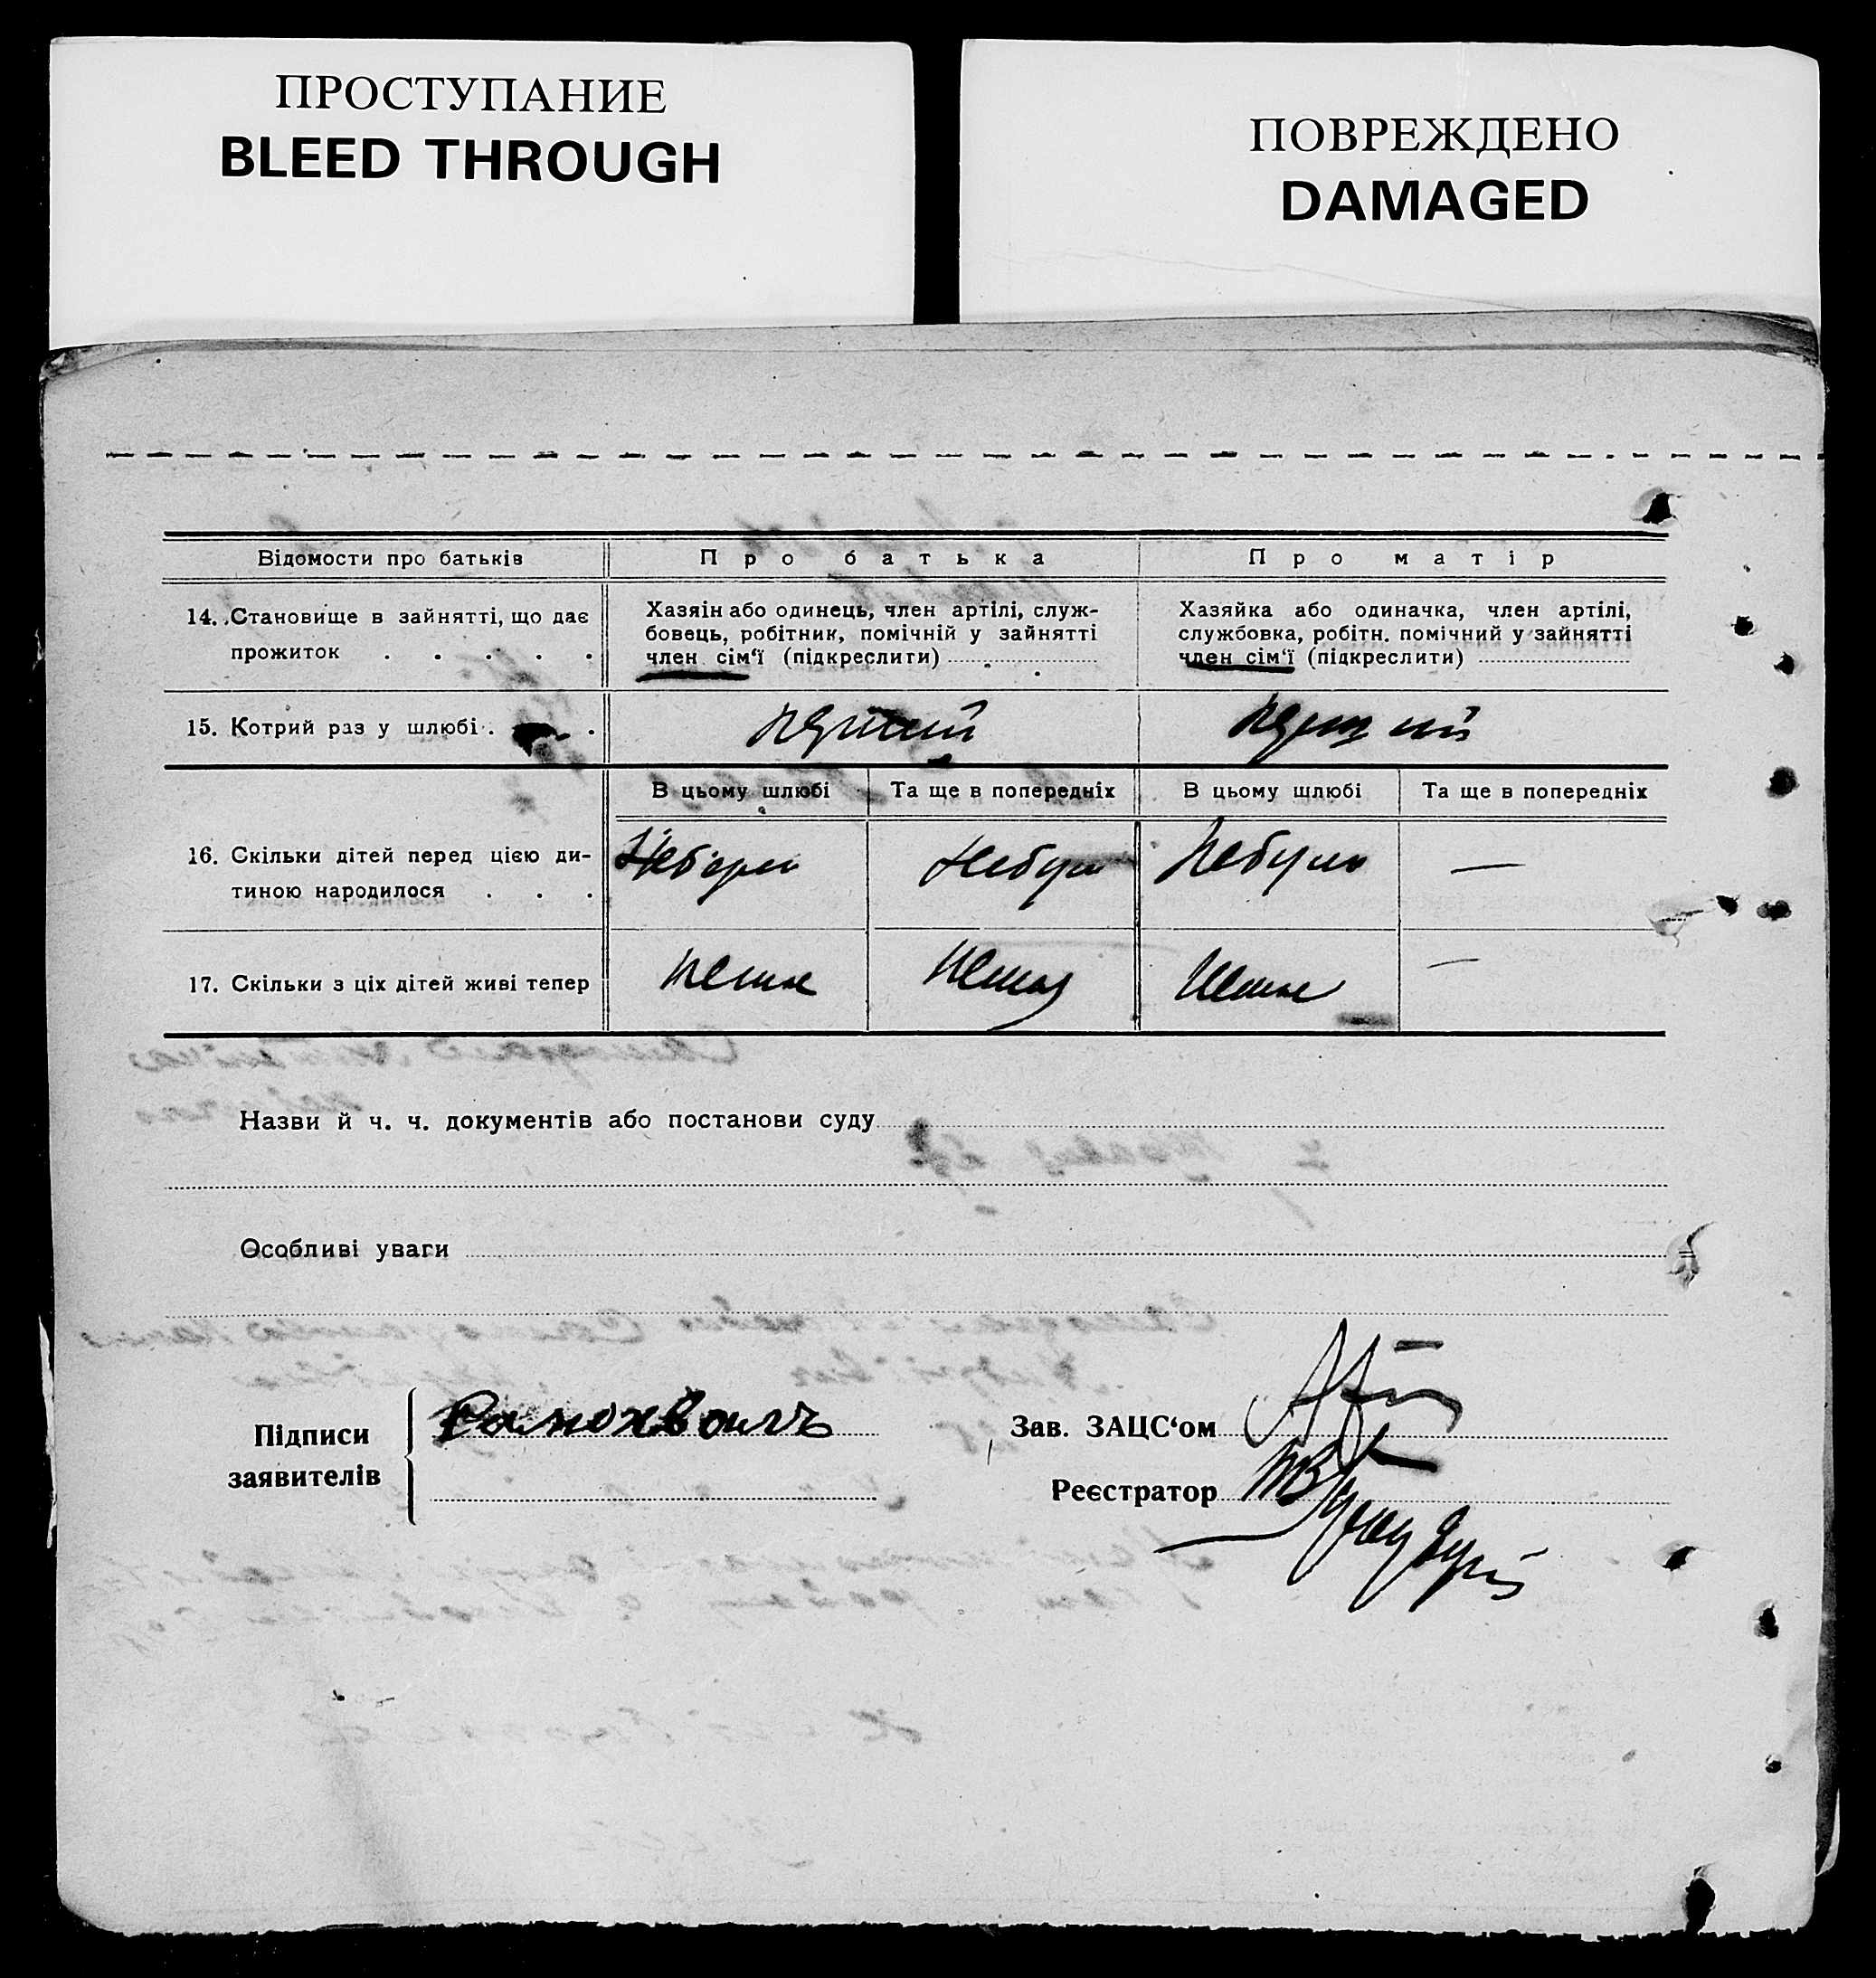 ПРОСТУПАНИЕ
BLEED THROUGH
ПОВРЕЖДЕНО
DAMAGED
Відомости про батьків
Про батька
Про матір
14. Становище в зайнятті, що дає
прожиток . . . . .
Хазяін або одинець, член артілі, служ-
бовець, робітник, помічній у зайнятті
член сім‘ї (підкреслити)
Хазяйка або одиначка, член артілі,
службовка, робітн. помічний у зайнятті
член сім‘ї (підкреслити)
15. Котрий раз у шлюбі . . .
перший
перший
В цьому шлюбі
Та ще в попередніх
В цьому шлюбі
Та ще в попередніх
16. Скільки дітей перед цією ди-
тиною народилося . . .
Небуло
—
17. Скільки з ціх дітей живі тепер
Немає
Немає
Немає
—
Назви й ч. ч. документів або постанови суду
Особливі уваги
Підписи
заявителів
Самохвалъ
Зав. ЗАЦС‘ом
Реєстратор